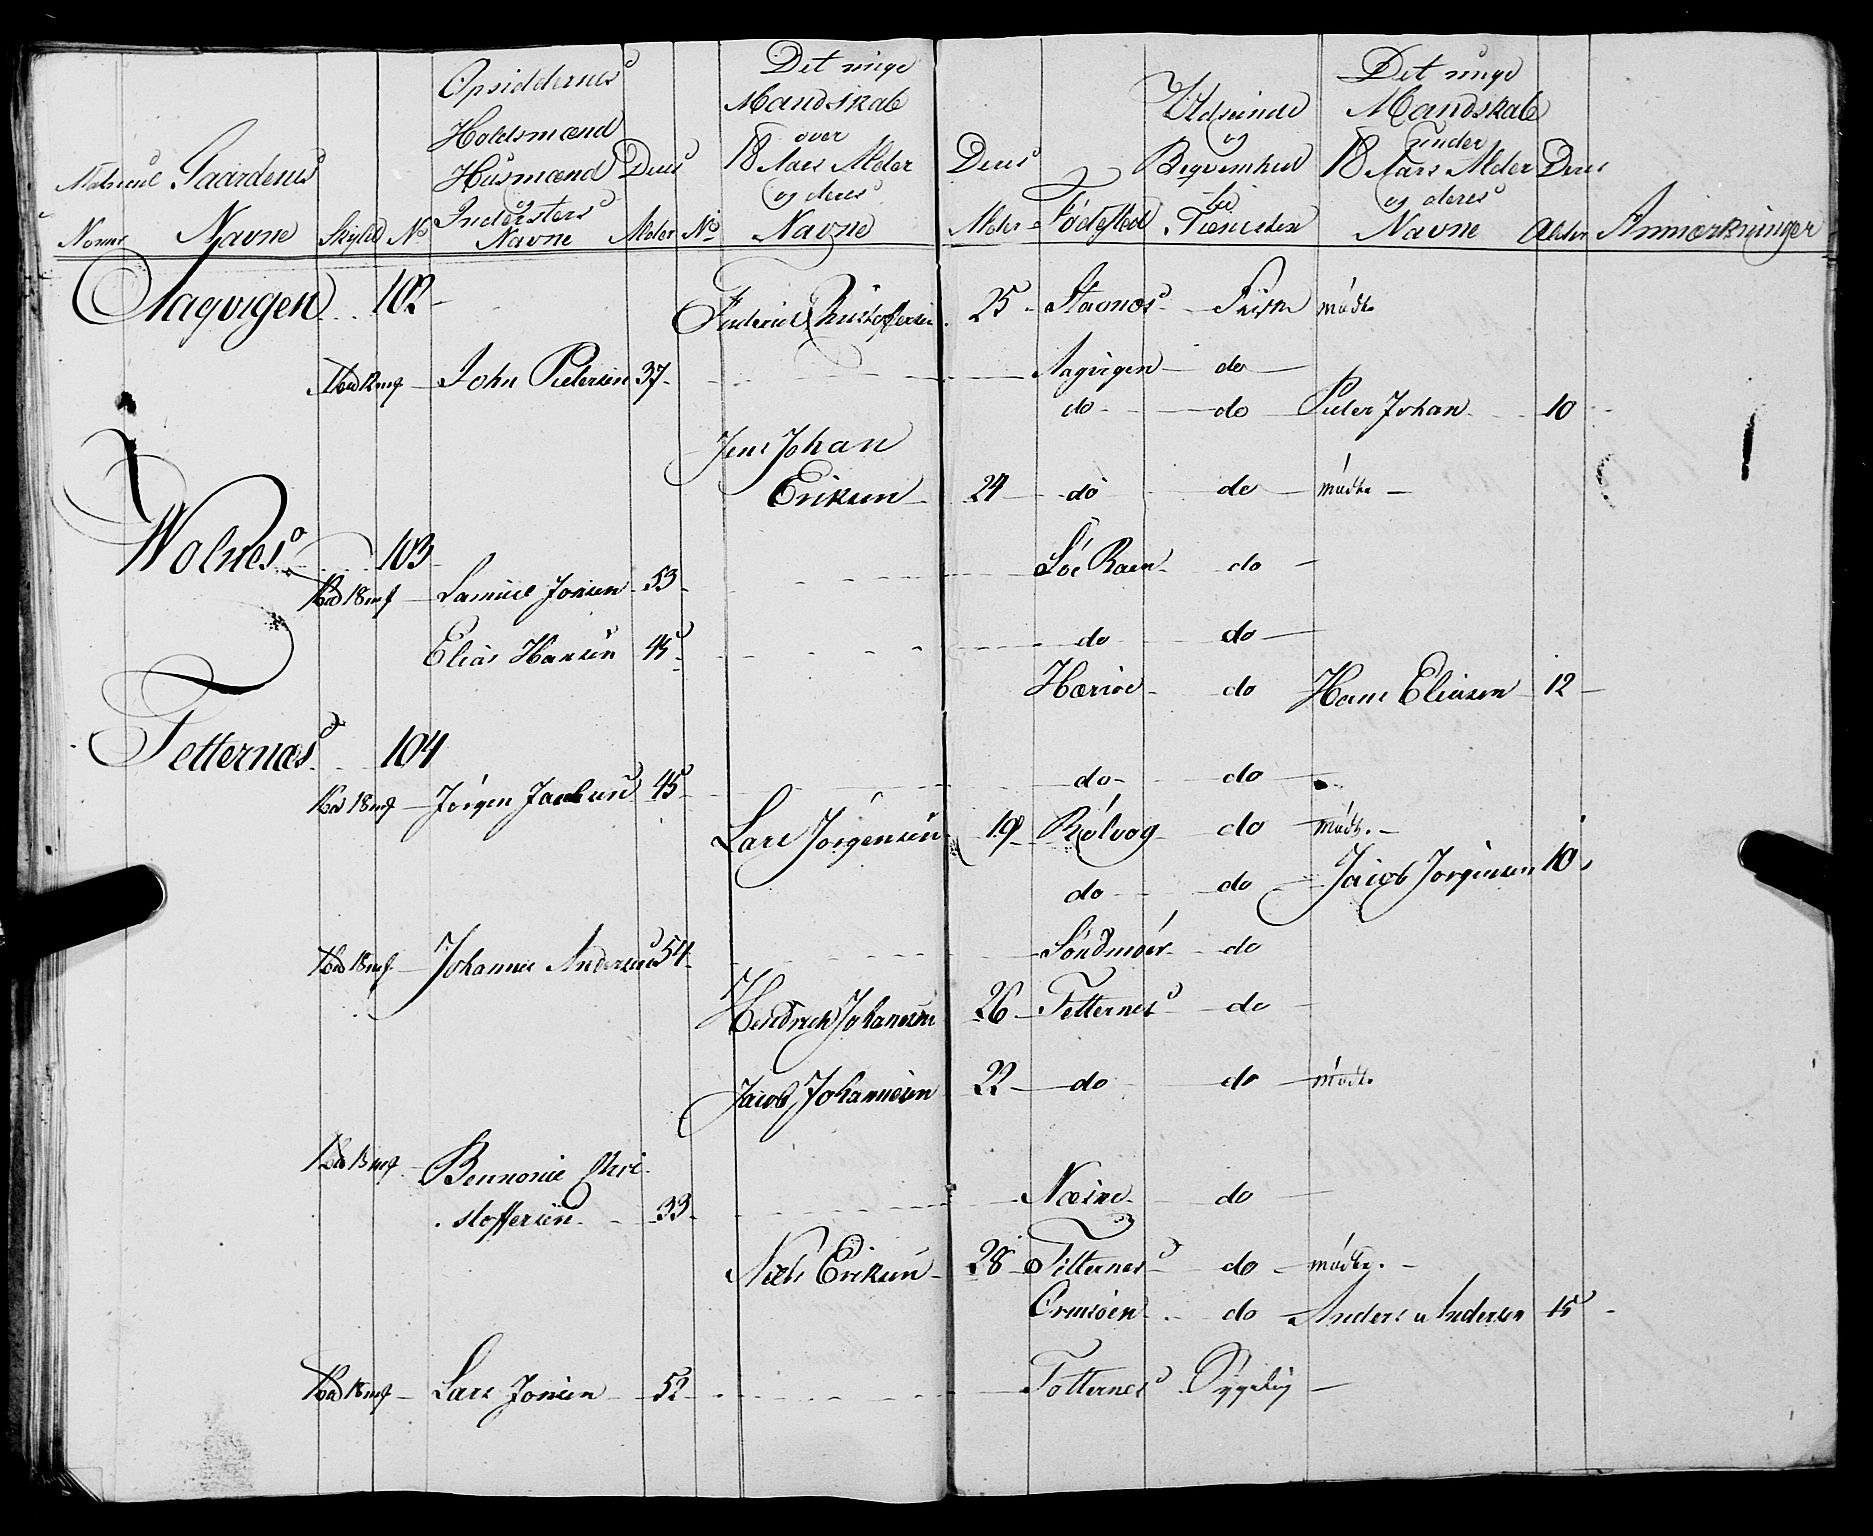 Matricul Nomr
Gaardenes Navne
Skyld
No
Opsiddernes Holdsmænd Husmænd og Indersters Navne
Deres Alder
No
Det unge Mandskab over 18 Aars Alder og deres Navne
Deres Alder
Fødested
Udseende og Beqvemhed til Tienesten
Det unge Mandskab under 18 Aars Alder og deres Navne
Deres Alder
Anmærkninger
Aaqvigen 102
Friderich Christoffersen 25 Stavnæs Frisk mødte
John Pedersen 37 Aaqvigen do
do do Peder Johan 10
Jens Johan
Eriksen 24 do do mødte
Wolnes 103
18mk Samuel Jonsen 53 do
Elias Hansen 45 do do
Hærøe do Hans Eliasen 12
Tetternæs 104
18mk Jørgen Jacobsen 45 do do
Lars Jørgensen 19 Rølvog do mødte
do do Jacob Jørgensen 10
18mk Johannes Andersen 54 Søndmøer do
Hendrich Johannesen 26 Tetternes do
Jacob Johannesen 22 do do mødte
Bennonie Chri
stoffersen 33 Næsne do
Niels Eriksen 28 Tetternes do mødte
do Anders Andersen 15
18mk Lars Jonsen 52 Totternes Sygelig